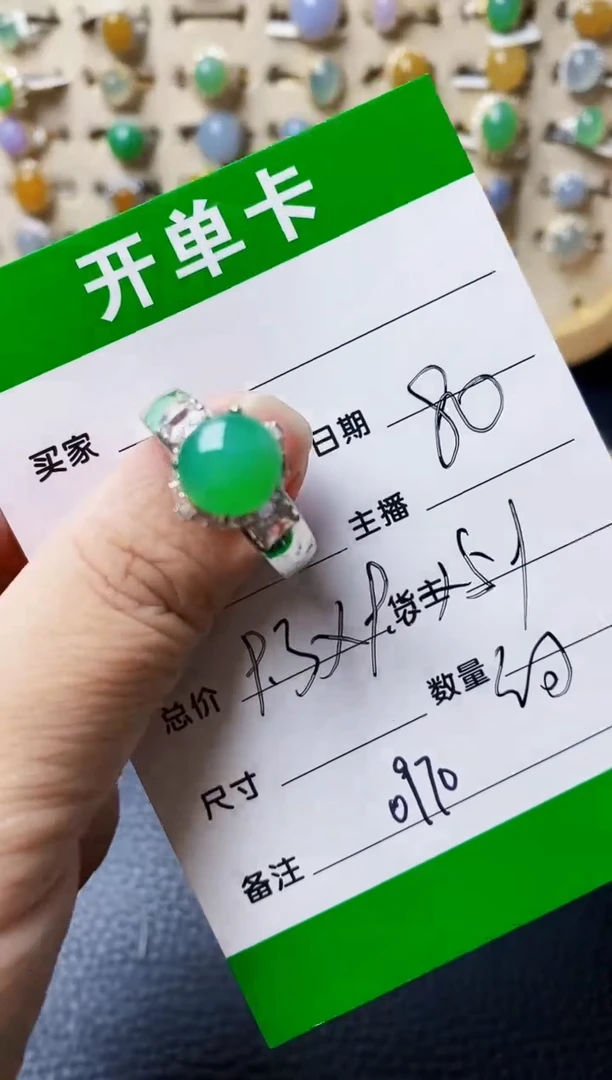 开单卡
买家
日期 80
主播
总价
货主
尺寸
数量
备注 0970